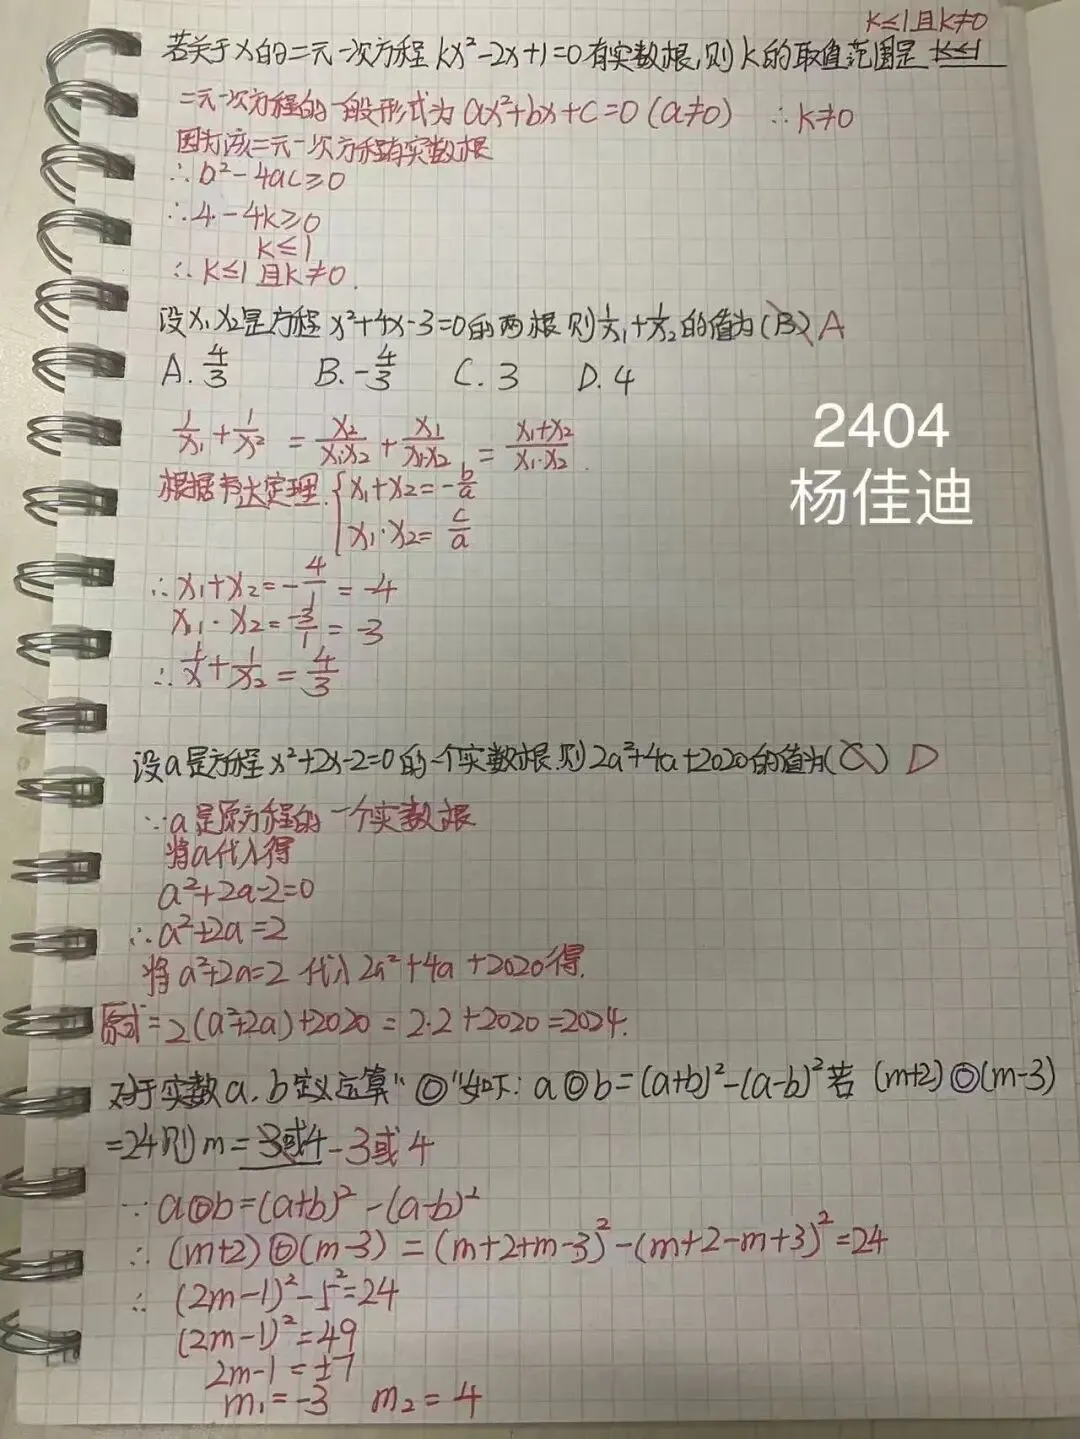 k≤1且k≠0
若关于x的二元一次方程 kx²-2x+1=0有实数根,则k的取值范围是 k≤1
二元一次方程的一般形式为 ax²+bx+c=0(a≠0) ∴k≠0
因为该二元一次方程有实数根
∴b²-4ac≥0
∴4-4k≥0
k≤1
∴k≤1且k≠0.
设x₁x₂是方程 x²+4x-3=0的两根 则1/x₁+1/x₂的值为(B)A
A. 4/3 B. -4/3 C. 3 D. 4
1/x₁+1/x₂ = x₂/x₁·x₂ + x₁/x₁·x₂ = x₁+x₂/x₁·x₂.
根据韦达定理. { x₁+x₂=-b/a
x₁·x₂= c/a
∴x₁+x₂=-4/1=-4
x₁·x₂=-3/1=-3
∴1/x+1/x₂=4/3
2404
杨佳迪
设a是方程x²+2x-2=0的一个实数根.则2a²+4a+2020的值为(C) D
∵a是原方程的一个实数根
将a代入得
a²+2a-2=0
∴a²+2a=2
将a²+2a=2 代入2a²+4a+2020得.
原式=2(a²+2a)+2020=2·2+2020=2024.
对于实数a.b定义运算"◎"如下: a◎b=(a+b)²-(a-b)²若 (m+2)◎(m-3)
=24则m=3或4 -3或4
∵a◎b=(a+b)²-(a-b)²
∴(m+2)◎(m-3)=(m+2+m-3)²-(m+2-m+3)²=24
∴ (2m-1)²-5²=24
(2m-1)²=49
2m-1=±7
m₁=-3 m₂=4